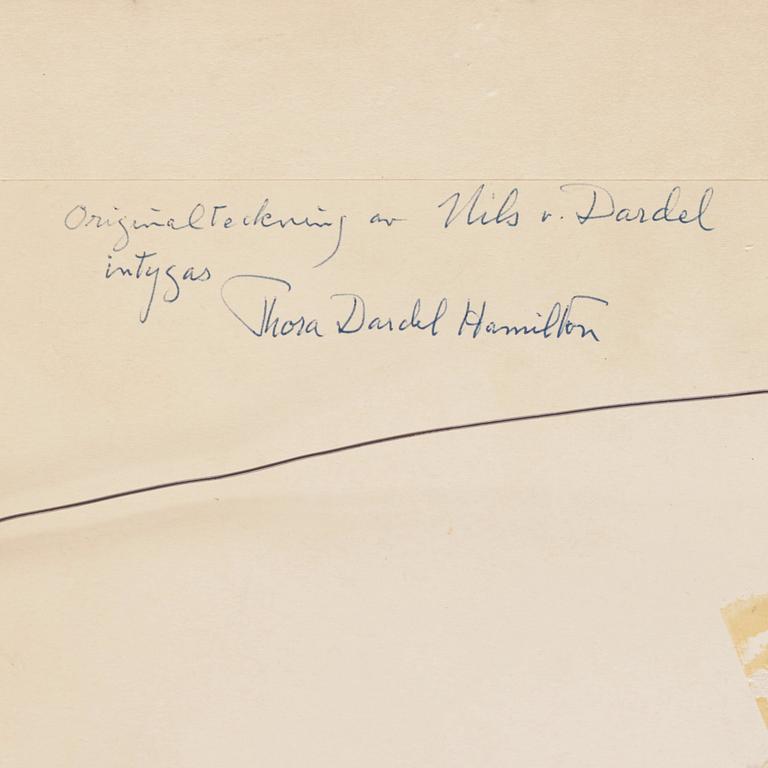 Originalteckning av Nils v. Dardel
intygas
Thora Dardel Hamilton